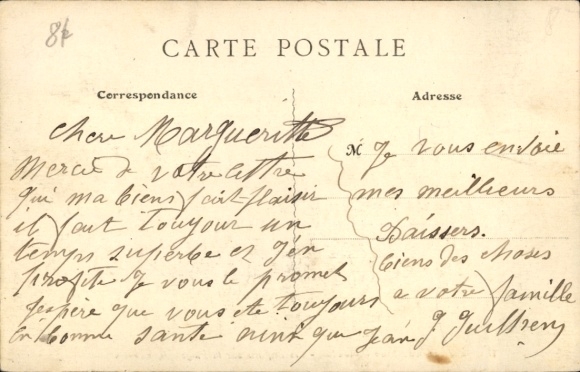 CARTE POSTALE
Correspondance
Chere Margueritte
Merci de votre lettre
qui ma biens fait plaisir
il fait toujour un
temps superbe et j'en
profite je vous le promet
j'espère que vous ete toujours
en bonne santé ainsi que Jean
Adresse
M Je vous envoie
mes meilleurs
Baissers.
biens des choses
a votre famille